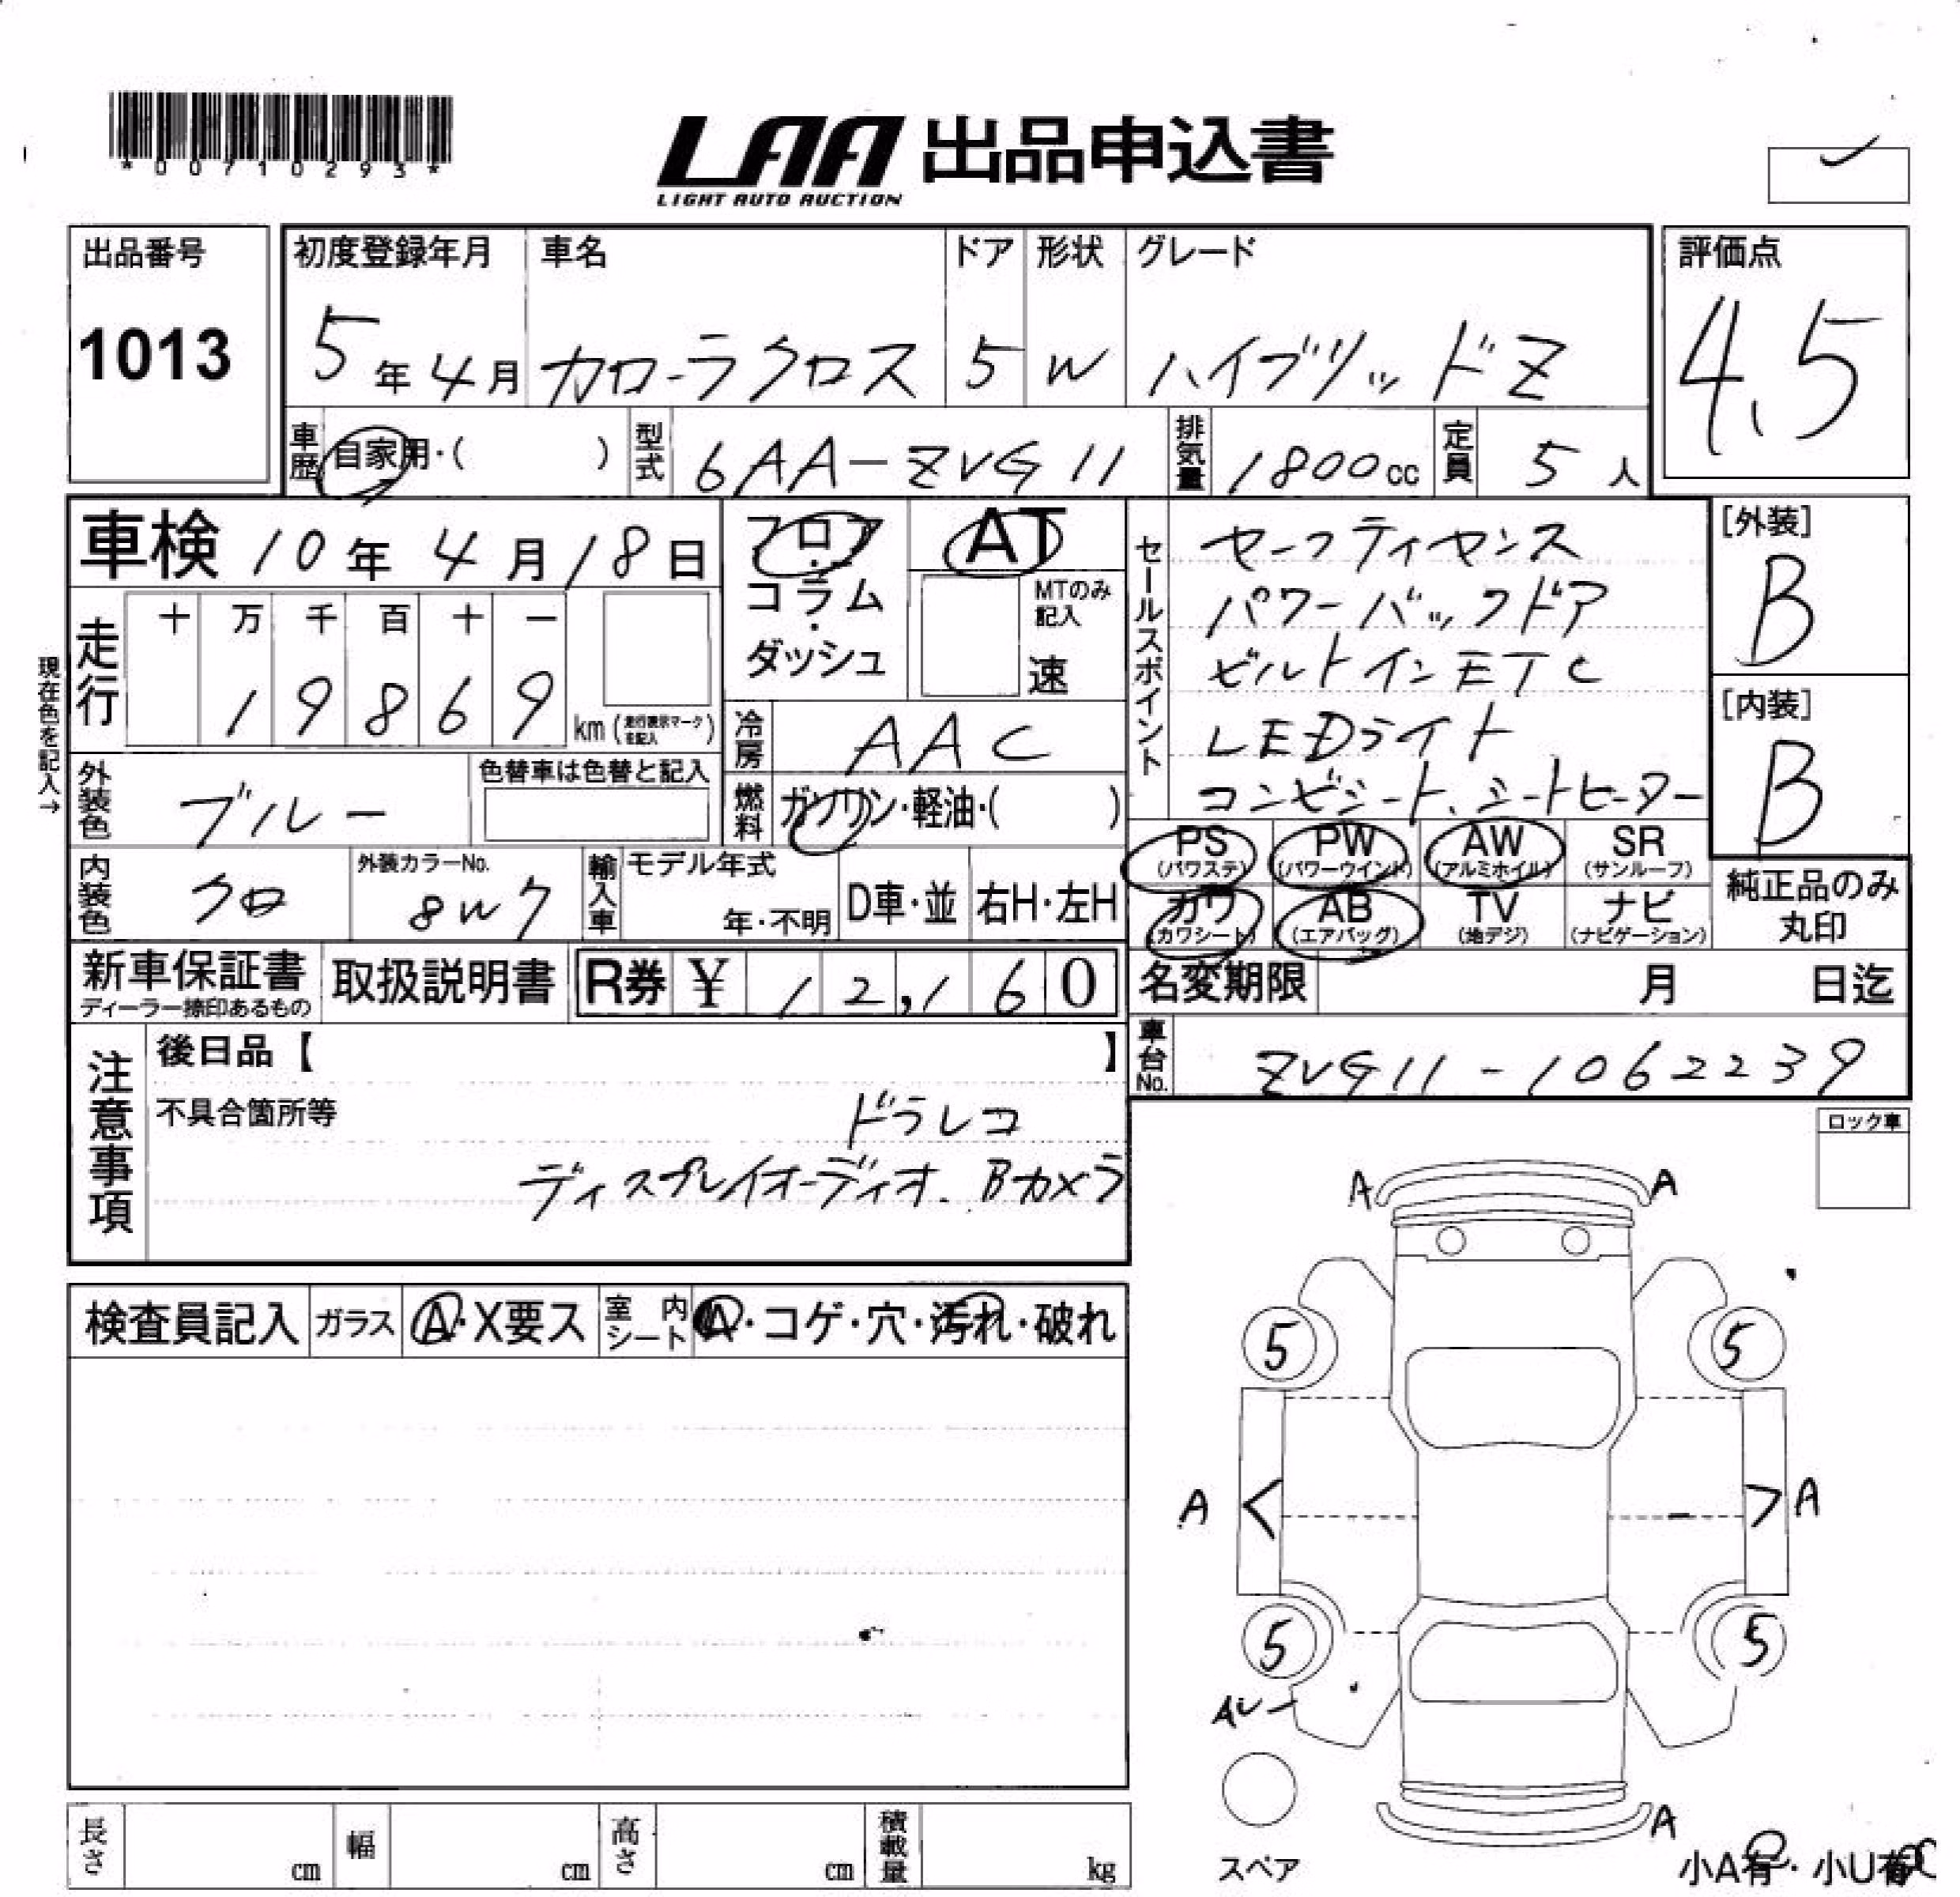 *00710293*
LAA 出品申込書
LIGHT AUTO AUCTION
出品番号
1013
初度登録年月 車名 ドア 形状 グレード
5年4月 カローラクロス 5 W ハイブリッドZ
評価点
4.5
車歴 自家用・( ) 型式 6AA-ZVG11 排気量 1800cc 定員 5人
車検 10年4月18日
フロア・コラム・ダッシュ
AT
MTのみ記入
速
セールスポイント
セーフティセンス
パワーバックドア
ビルトインETC
LEDライト
コンビシート、シートヒーター
[外装]
B
[内装]
B
現在色を記入→
走行 十 万 千 百 十 一
19869 km (走行表示マークを記入)
冷房 AAC
外装色 ブルー 色替車は色替と記入
燃料 ガソリン・軽油・( )
内装色 クロ 外装カラーNo. 8W7 輸入車 モデル年式 年・不明 D車・並 右H・左H
PS(パワステ) PW(パワーウインド) AW(アルミホイル) SR(サンルーフ)
カワ(カワシート) AB(エアバッグ) TV(地デジ) ナビ(ナビゲーション)
純正品のみ丸印
新車保証書 ディーラー捺印あるもの 取扱説明書 R券 ¥12,160
名変期限 月 日迄
車台No. ZVG11-1062239
注意事項
後日品【 】
不具合箇所等
ドラレコ
ディスプレイオーディオ. Bカメラ
ロック車
検査員記入 ガラス A・X要ス 室内シート A・コゲ・穴・汚れ・破れ
A A
5 5
A < > A
5 5
AU
A
スペア
小A有・小U有
長さ cm 幅 cm 高さ cm 積載量 kg